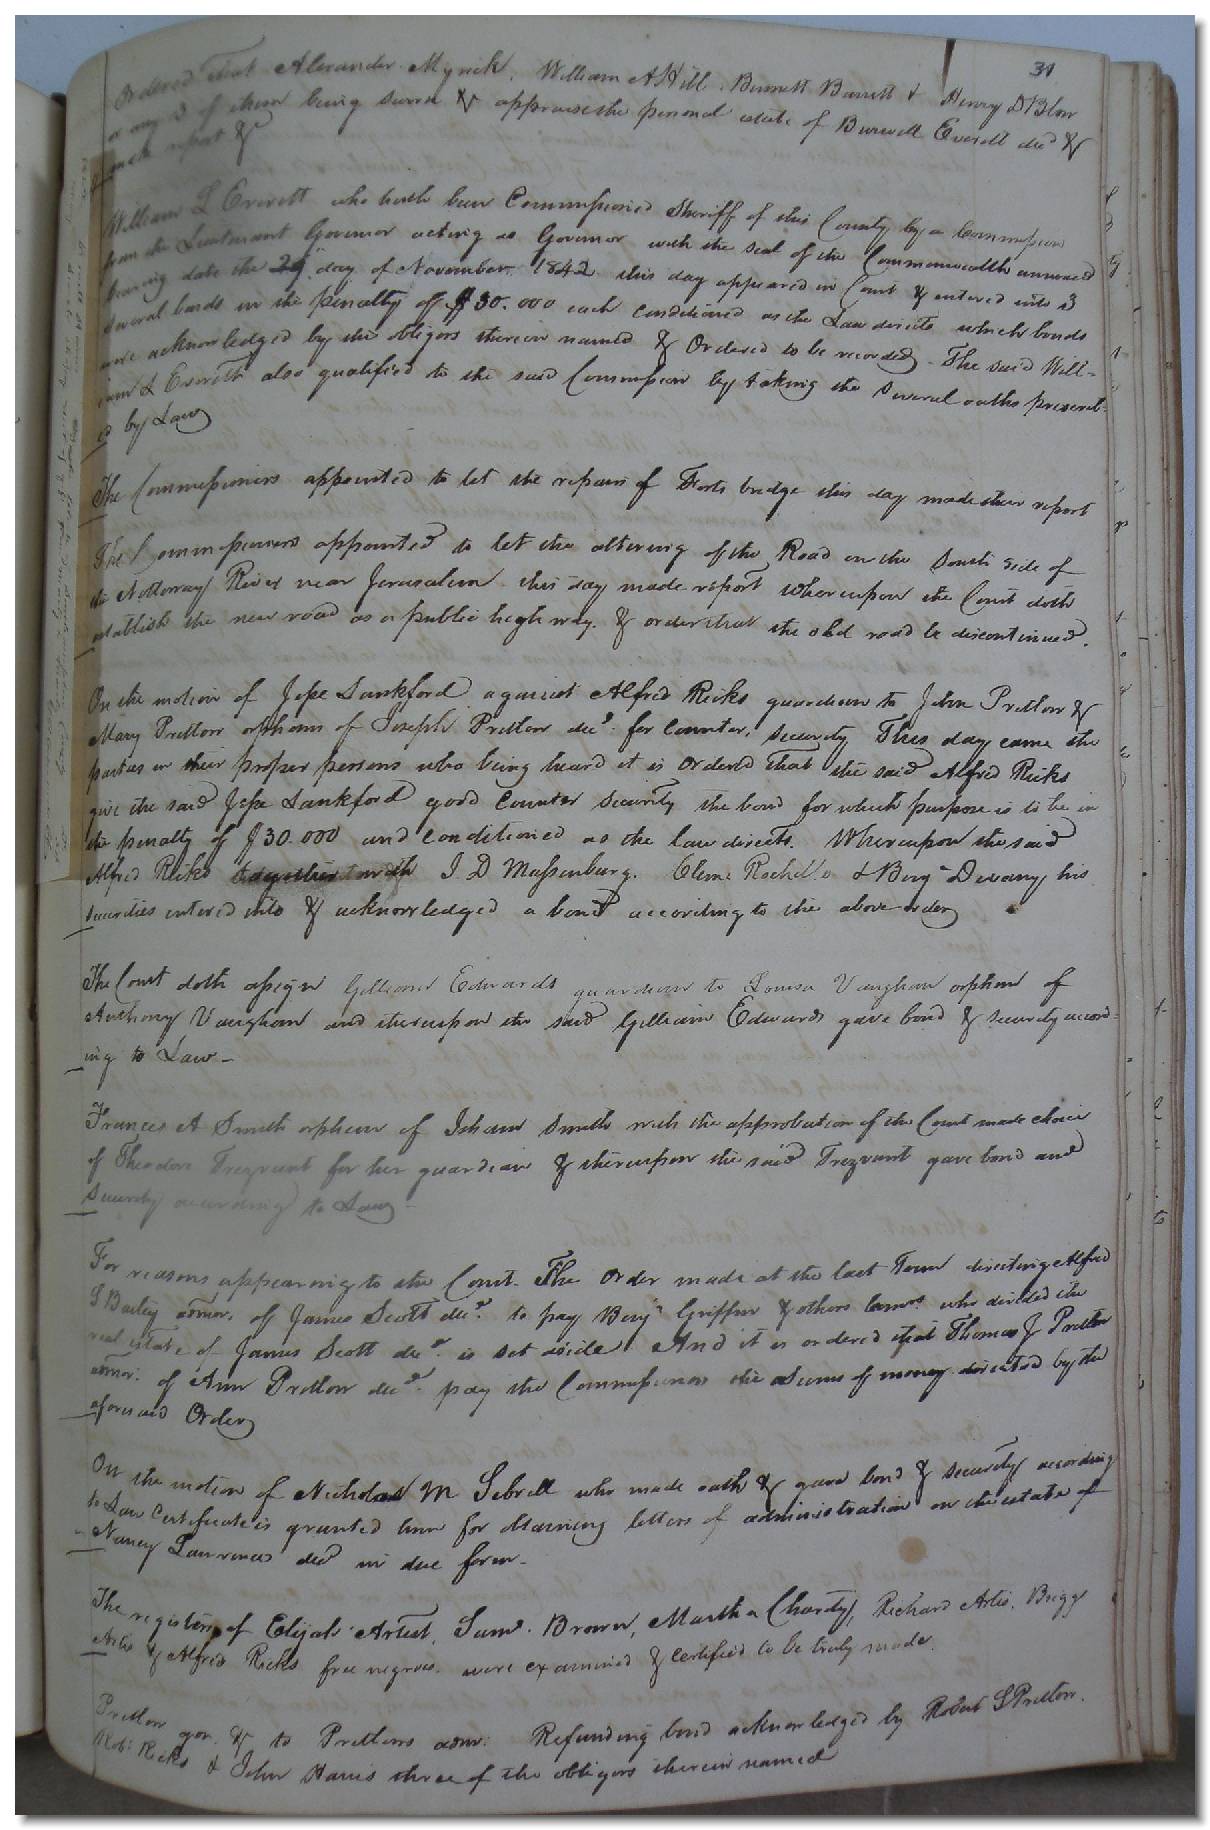 31
Ordered that Alexander Myrick, William A Hill, Burnett Barrett & Henry D Blow
or any 3 of them being sworn &c appraise the personal estate of Burwell Everett decd &
make report &c
William L Everett who hath been Commissioned Sheriff of this County by a Commission
from the Lieutenant Governor acting as Governor with the seal of the Commonwealth annexed
bearing date the day of November 1842 this day appeared in Court & entered into 3
several bonds in the penalty of $30.000 each conditioned as the Law directs which bonds
were acknowledged by the obligors therein named & Ordered to be recorded - The said Will-
iam L Everett also qualified to the said Commission by taking the several oaths prescrib-
ed by Law
The Commissioners appointed to let the repairs of bridge this day made their report
The Commissioners appointed to let the altering of the Road on the South side of
the Nottoway River near Jerusalem this day made report whereupon the Court doth
establish the new road as a public high way. & order that the old road be discontinued.
On the motion of Jesse Lankford against Alfred Ricks guardian to John Pretlow &
Mary Pretlow orphans of Joseph Pretlow decd. for Counter security This day came the
parties in their proper persons who being heard it is Ordered that the said Alfred Ricks
give the said Jesse Lankford good Counter Security the bond for which purpose is to be in
the penalty of $30.000 and conditioned as the law directs. Whereupon the said
Alfred Ricks together with I D Massenburg. Clem: Rochelle & Benj: Devany his
securities entered into & acknowledged a bond according to the above order
The Court doth assign Gilliam Edwards guardian to Louisa Vaughan orphan of
Anthony Vaughan and thereupon the said Gilliam Edwards gave bond & security accord-
ing to Law -
Frances A Smith orphan of Isham Smith with the approbation of the Court made choice
of Theodore Trezvant for her guardian & thereupon the said Trezvant gave bond and
Security according to Law -
For reasons appearing to the Court. The Order made at the last Term directing Alfred
S Bailey admor. of James Scott decd. to pay Benj: Griffin & others who divided the
real estate of James Scott decd. is set aside And it is ordered that Thomas J Pretlow
admor: of Ann Pretlow decd. pay the Commissioners the Sums of money directed by the
aforesaid Order
On the motion of Nicholas M Sebrell who made oath & gave bond & security according
to Law Certificate is granted him for obtaining letters of administration on the estate of
Nancy Lawrence decd in due form -
The registers of Elijah Artist, Saml. Brown, Martha Charity, Richard Artis, Briggs
Artis & Alfred Ricks free negroes were examined & certified to be truly made.
Pretlow gdn. &c to Pretlows admr: Refunding bond acknowledged by Robert S Pretlow.
Rob: Ricks & John Harris three of the obligors therein named